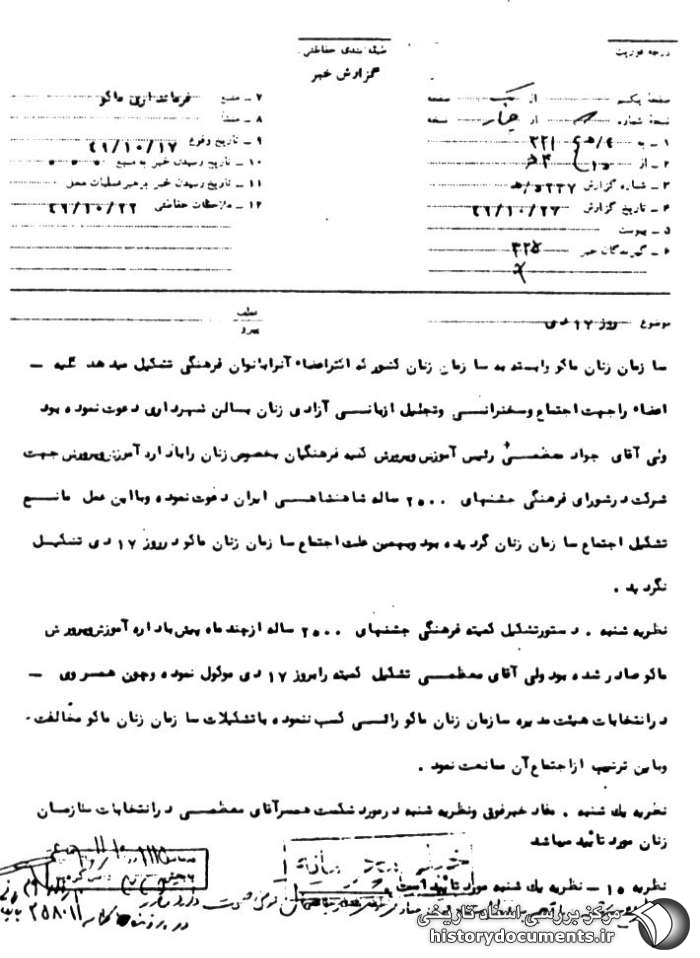 درجه فوریت
طبقه بندی حفاظتی
گزارش خبر
صفحه یکم از یک صفحه
نسخه شماره از چهار نسخه
۱ - به ۳۲۱
۲ - از ۱۵ ه‍ ۳
۳ - شماره گزارش
۴ - تاریخ گزارش ۴۹/۱۰/۲۷
۵ - پیوست
۶ - گیرندگان خبر ۳۲۵
۷ - منبع فرمانداری ماکو
۸ - منشأ
۹ - تاریخ وقوع ۴۹/۱۰/۱۷
۱۰ - تاریخ رسیدن خبر به منبع
۱۱ - تاریخ رسیدن خبر برهبر عملیات محل
۱۲ - ملاحظات حفاظتی ۴۹/۱۰/۲۲
موضوع روز ۱۷ دی
عطف
پیرو
سازمان زنان ماکو وابسته به سازمان زنان کشور که اکثر اعضاء آنرا بانوان فرهنگی تشکیل میدهد کلیه -
اعضاء را جهت اجتماع و سخنرانی و تجلیل از بانی آزادی زنان بسالن شهرداری دعوت نموده بود
ولی آقای جواد معظمی رئیس آموزش و پرورش کلیه فرهنگیان بخصوص زنان را باداره آموزش و پرورش جهت
شرکت در شورای فرهنگی جشنهای ۲۵۰۰ ساله شاهنشاهی ایران دعوت نموده و با این عمل مانع
تشکیل اجتماع سازمان زنان گردیده بود و بهمین علت اجتماع سازمان زنان ماکو در روز ۱۷ دی تشکیل
نگردید .
نظریه شنبه . دستور تشکیل کمیته فرهنگی جشنهای ۲۵۰۰ ساله از چند ماه پیش باداره آموزش و پرورش
ماکو صادر شده بود ولی آقای معظمی تشکیل کمیته را بروز ۱۷ دی موکول نموده و چون همسر وی -
در انتخابات هیئت مدیره سازمان زنان ماکو رائی کسب ننموده با تشکیلات سازمان زنان ماکو مخالفت -
و باین ترتیب از اجتماع آن ممانعت نمود .
نظریه یک شنبه . مفاد خبر فوق و نظریه شنبه در مورد شکست همسر آقای معظمی در انتخابات سازمان
زنان مورد تأیید میباشد
نظریه ۱۵ - نظریه یک شنبه مورد تأیید است
۲۵۸۰۱۱
مرکز بررسی اسناد تاریخی
historydocuments.ir